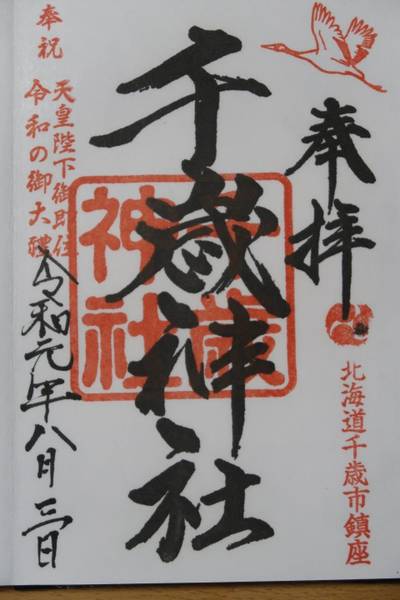 奉拝
北海道千歳市鎮座
千歳神社
千歳神社
奉祝
天皇陛下御即位
令和の御大禮
令和元年八月三日